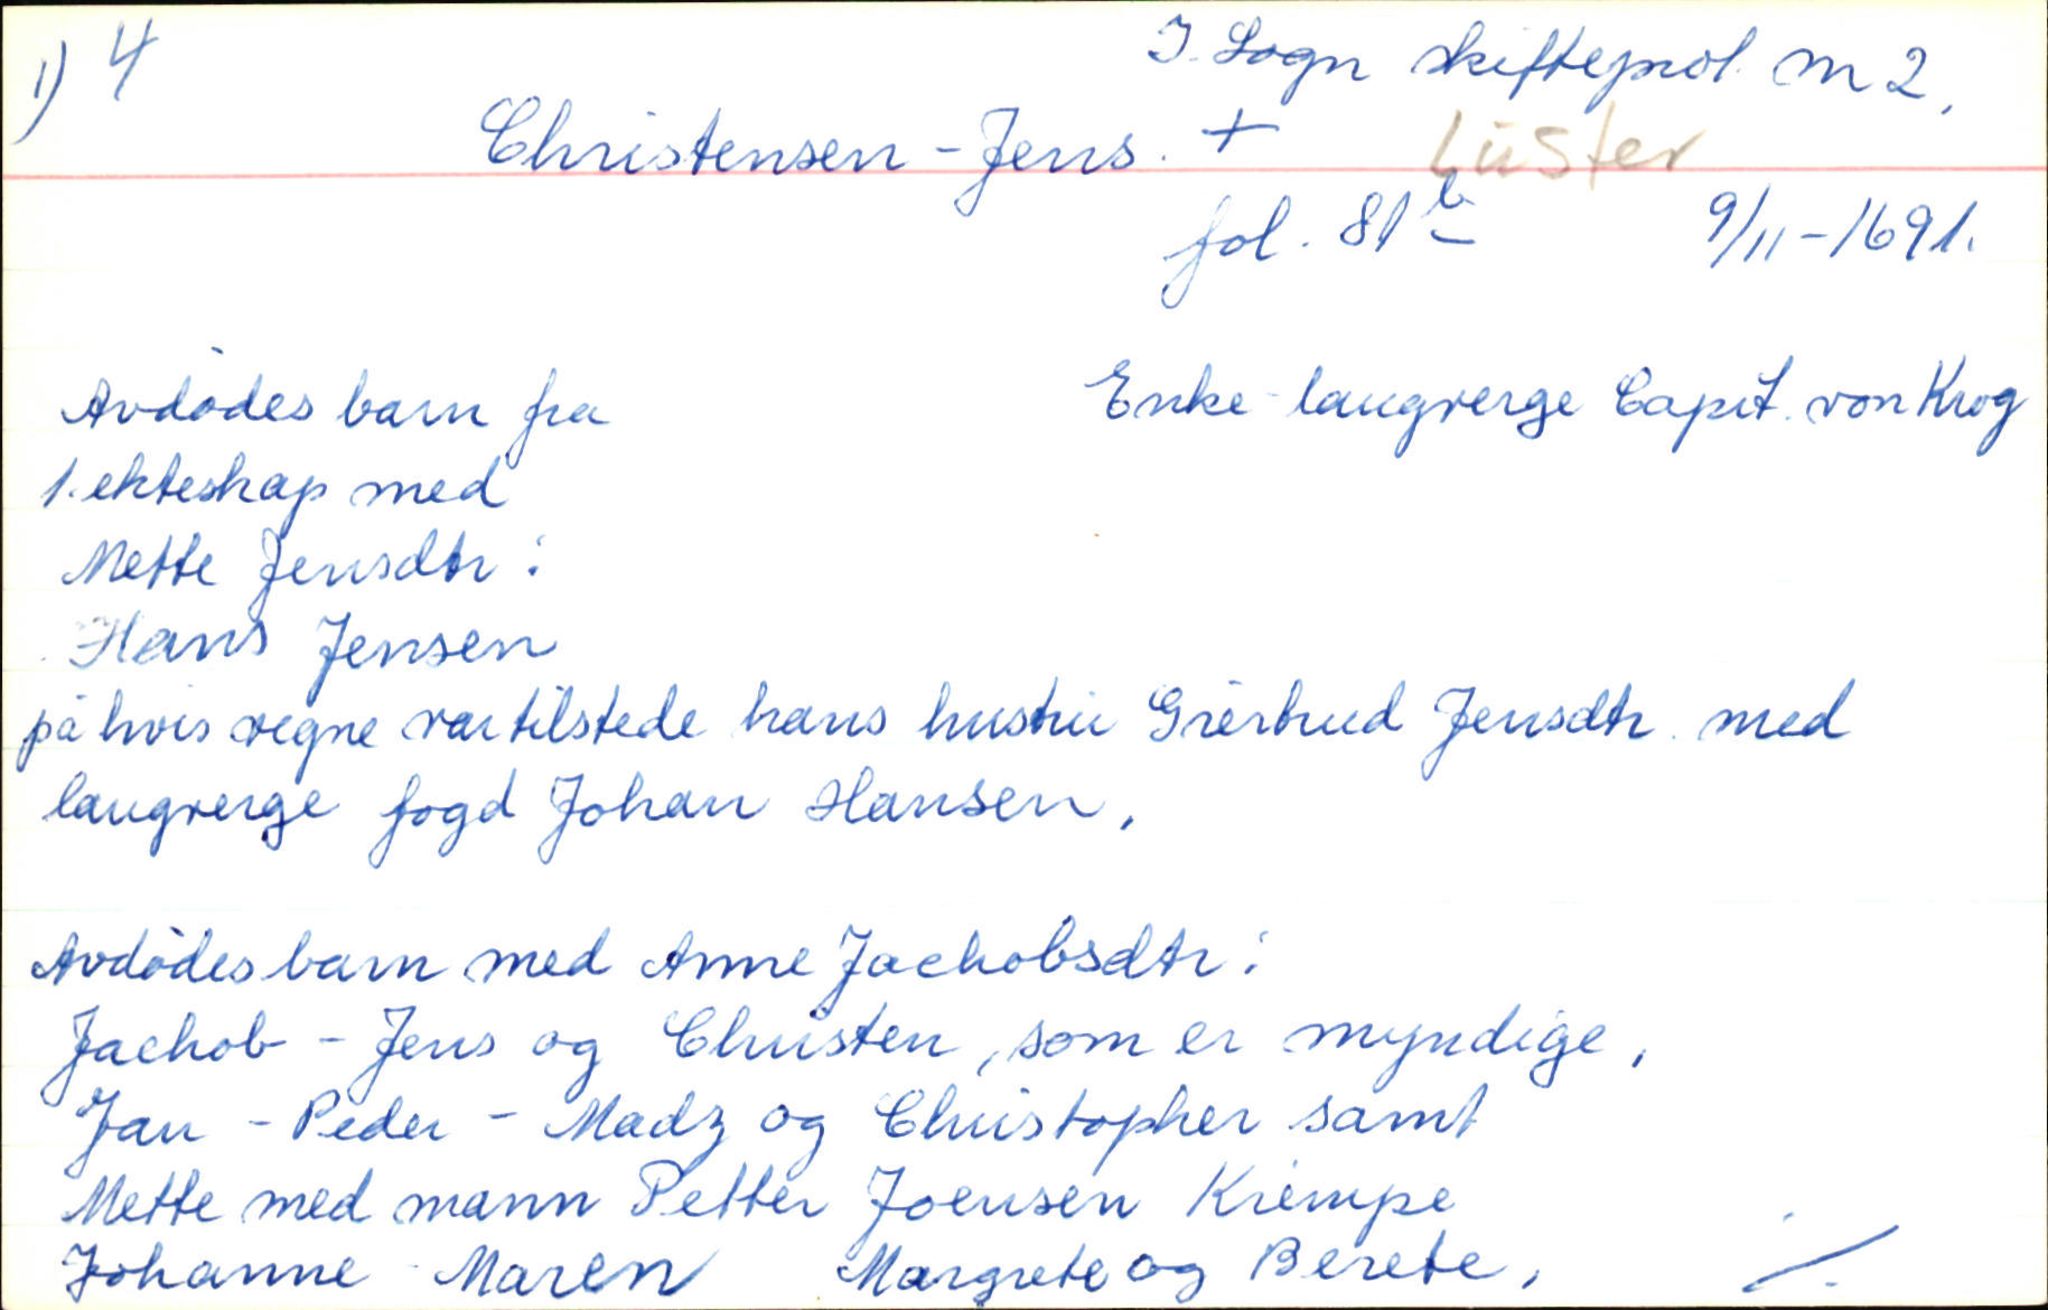 1) 4
I. Sogn skifteprot. m 2,
Christensen - Jens. +
Luster
fol. 81 b 9/11-1691.
Avdødes barn fra
Enke - laugverge Capit. von Krog
1. ekteskap med
Mette Jensdtr:
Hans Jensen
på hvis vegne var tilstede hans hustru Giertrud Jensdtr. med
laugverge fogd Johan Hansen.
Avdødes barn med Anne Jachobsdtr:
Jachob - Jens og Christen, som er myndige,
Jan - Peder - Madz og Christopher samt
Mette med mann Petter Joensen Krempe
Johanne - Maren Margrete og Berete,
./.